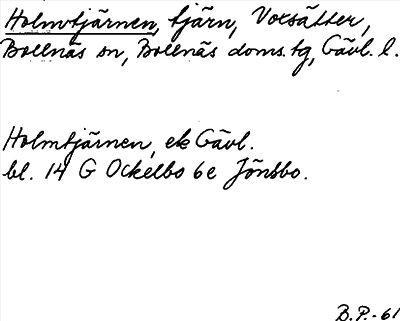 Holmtjärnen, tjärn, Voxsätter,
Bollnäs sn, Bollnäs doms.tg, Gävl. l.
Holmtjärnen, ek Gävl.
bl. 14 G Ockelbo 6e Jönsbo.
B.P.-61